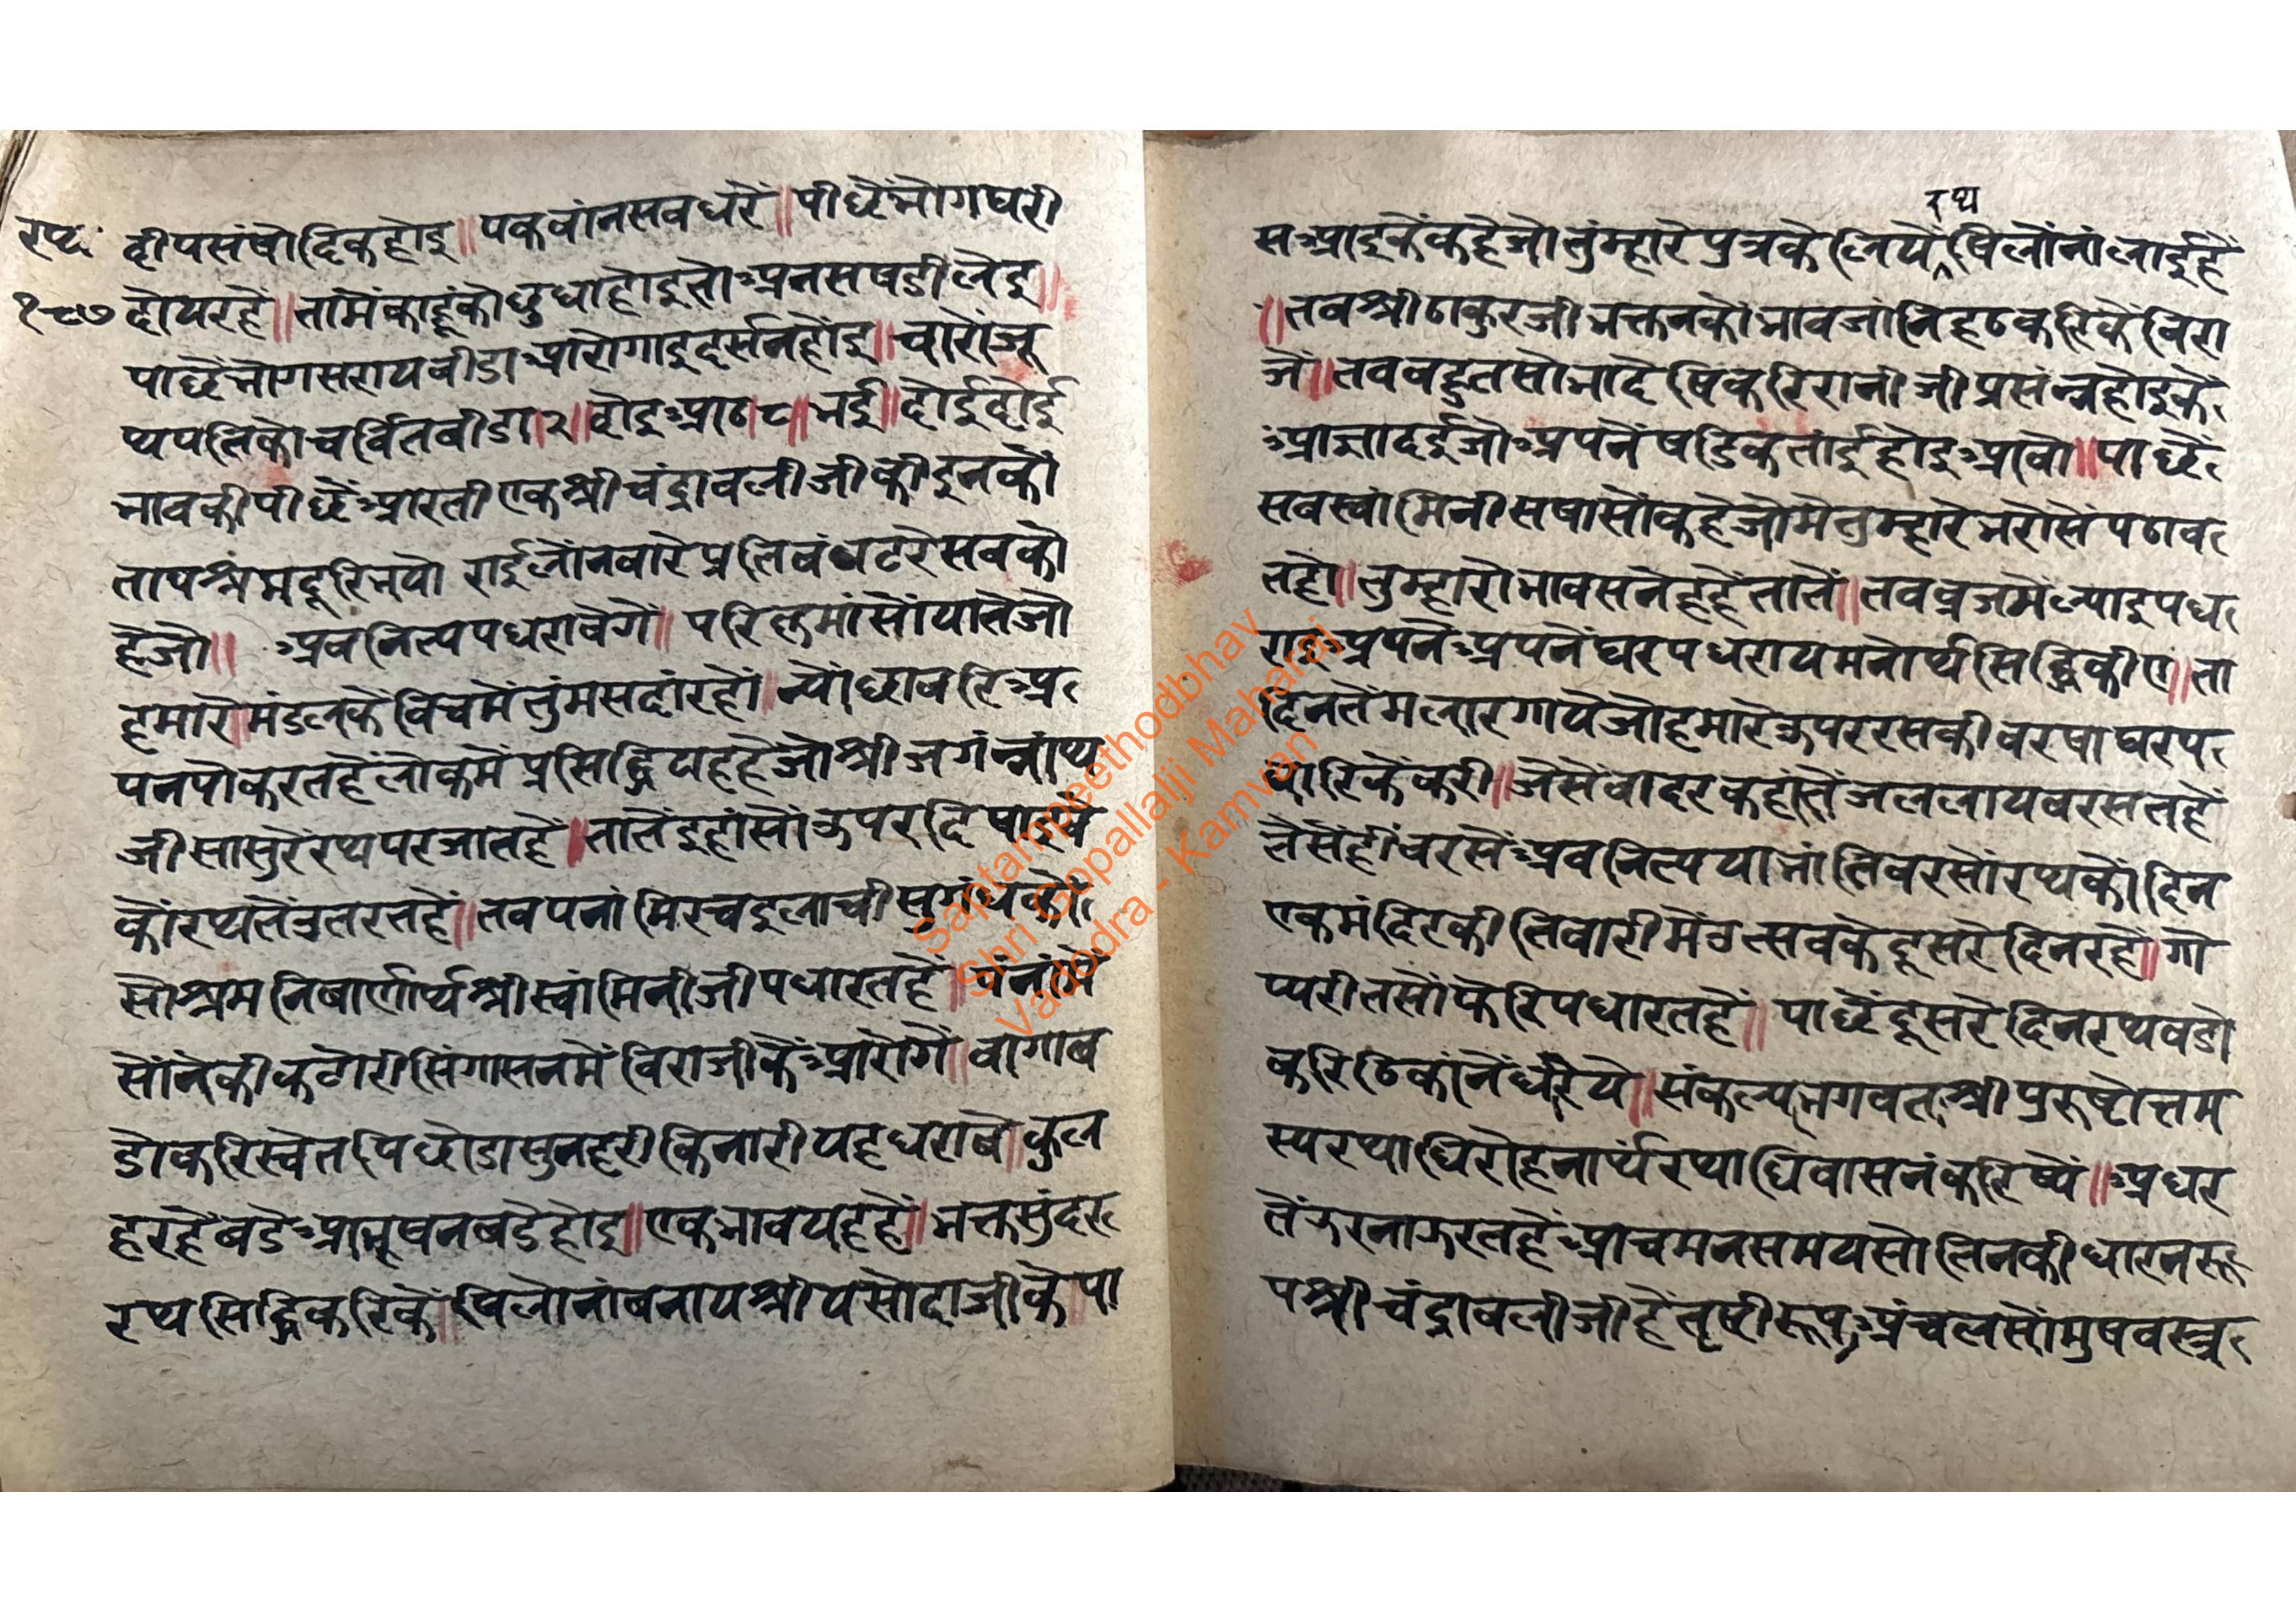 रथ
१८७
दीपसंषोदिकहोइ॥पकवांनसवधरें॥पीछेंभोगघरी
दोयरहें॥तामेंकाहूंकोछुधाहोइतोअनसषडीलेइ॥
पाछेंभोगसरायवीडाआरोगाइदर्सनहोंइ॥चारोंजू
थपतिकोचर्वितवीडा।२॥वोइआठ८॥भई॥दोईदोई
भावकीपीछेंआरतीएकश्रीचंद्रावलीजीकीइनकों
तापश्रंमदूरिभयो राईलोंनवारेप्रतिवंधटरेसवकों
हेजो॥ अवनित्यपधरावेगें॥परिक्रमांसोंयातेजो
हमारे।मंडलकेविचमेंतुंमसदांरहों॥न्योछावरिअ
पनपोकरतहेंलोकमेंप्रसिद्धियहहेजोश्रीजगंन्नांथ
जीसासुरेरथपरजातहें॥तातेंइहांसोंऊपरदिषाइवे
कोंरथतेंउतरतहें॥तवपनांमिरचइलाचीसुगंधकों
सोश्रमनिवार्णार्थश्रीस्वांमिनीजीपधारतहें॥पंनांमें
सोंनेकीकटोरीसिंगासनमेंविराजीकेंआरोगें॥वागाब
डोकरिस्वेतपिछोडासुनहरीकिनारीयहधरावे॥कुल
हरहेबडेआभूषनबडेहोइ॥एकभावयहहें॥भक्तसुंदर
रथसिद्धिकरिकें॥षिलोनांबनायश्रीयसोदाजीकेपा
रथ
सआइकेंकहेजोतुंम्हारेपुत्रकेलियेंषिलोंनांलाईहें
॥तवश्रीठाकुरजीभक्तनकोंभावजांनिहठकरिकेंविरा
जें॥तववहुतसोभादेषिकरिरानीजीप्रसंन्नहोइकें
आज्ञादईजोअपनेंषडिकतांईहोइआवो॥पाछें
सवस्वांमिनीसषासोंकहेजोमेंतुम्हारेभरोसेंपठाव
तहों॥तुम्हारोभावसनेहहेंतातें॥तवव्रजमेंल्याइपध
राइअपनेअपनेंघरपधरायमनोर्थसिद्धिकीए॥ता
दिनतेंमलारगायेजोहमारेऊपररसकीवरषाघरप
धारिकेंकरी॥जेसेंवादरकहांतेंजललायवरसतहें
तेसेंहीवरसेंअवनित्ययाभांतिवरसोंरथकोंदिन
एकमंदिरकीतिवारीमेंउत्सवकेदूसरेदिनरहें॥गो
प्यरीतसोंफेरिपधारतहें॥पाछेंदूसरेदिनरथवडो
करिठिकांनेंधरिये॥संकल्पभगवतश्रीपुरुषोत्तम
स्यरथाधिरोहनार्थंरथाधिवासनंकरिष्ये॥अधर
तेंऊरनाऊरतहेंआचमनसमयसोतिनकीधारनरू
पश्रीचंद्रावलीजीहेंतृषीरूपअंचलसोंमुषवस्त्र
Saptampeethodbhav
Shri Gopallalji Maharaj
Vadodra - Kamvan